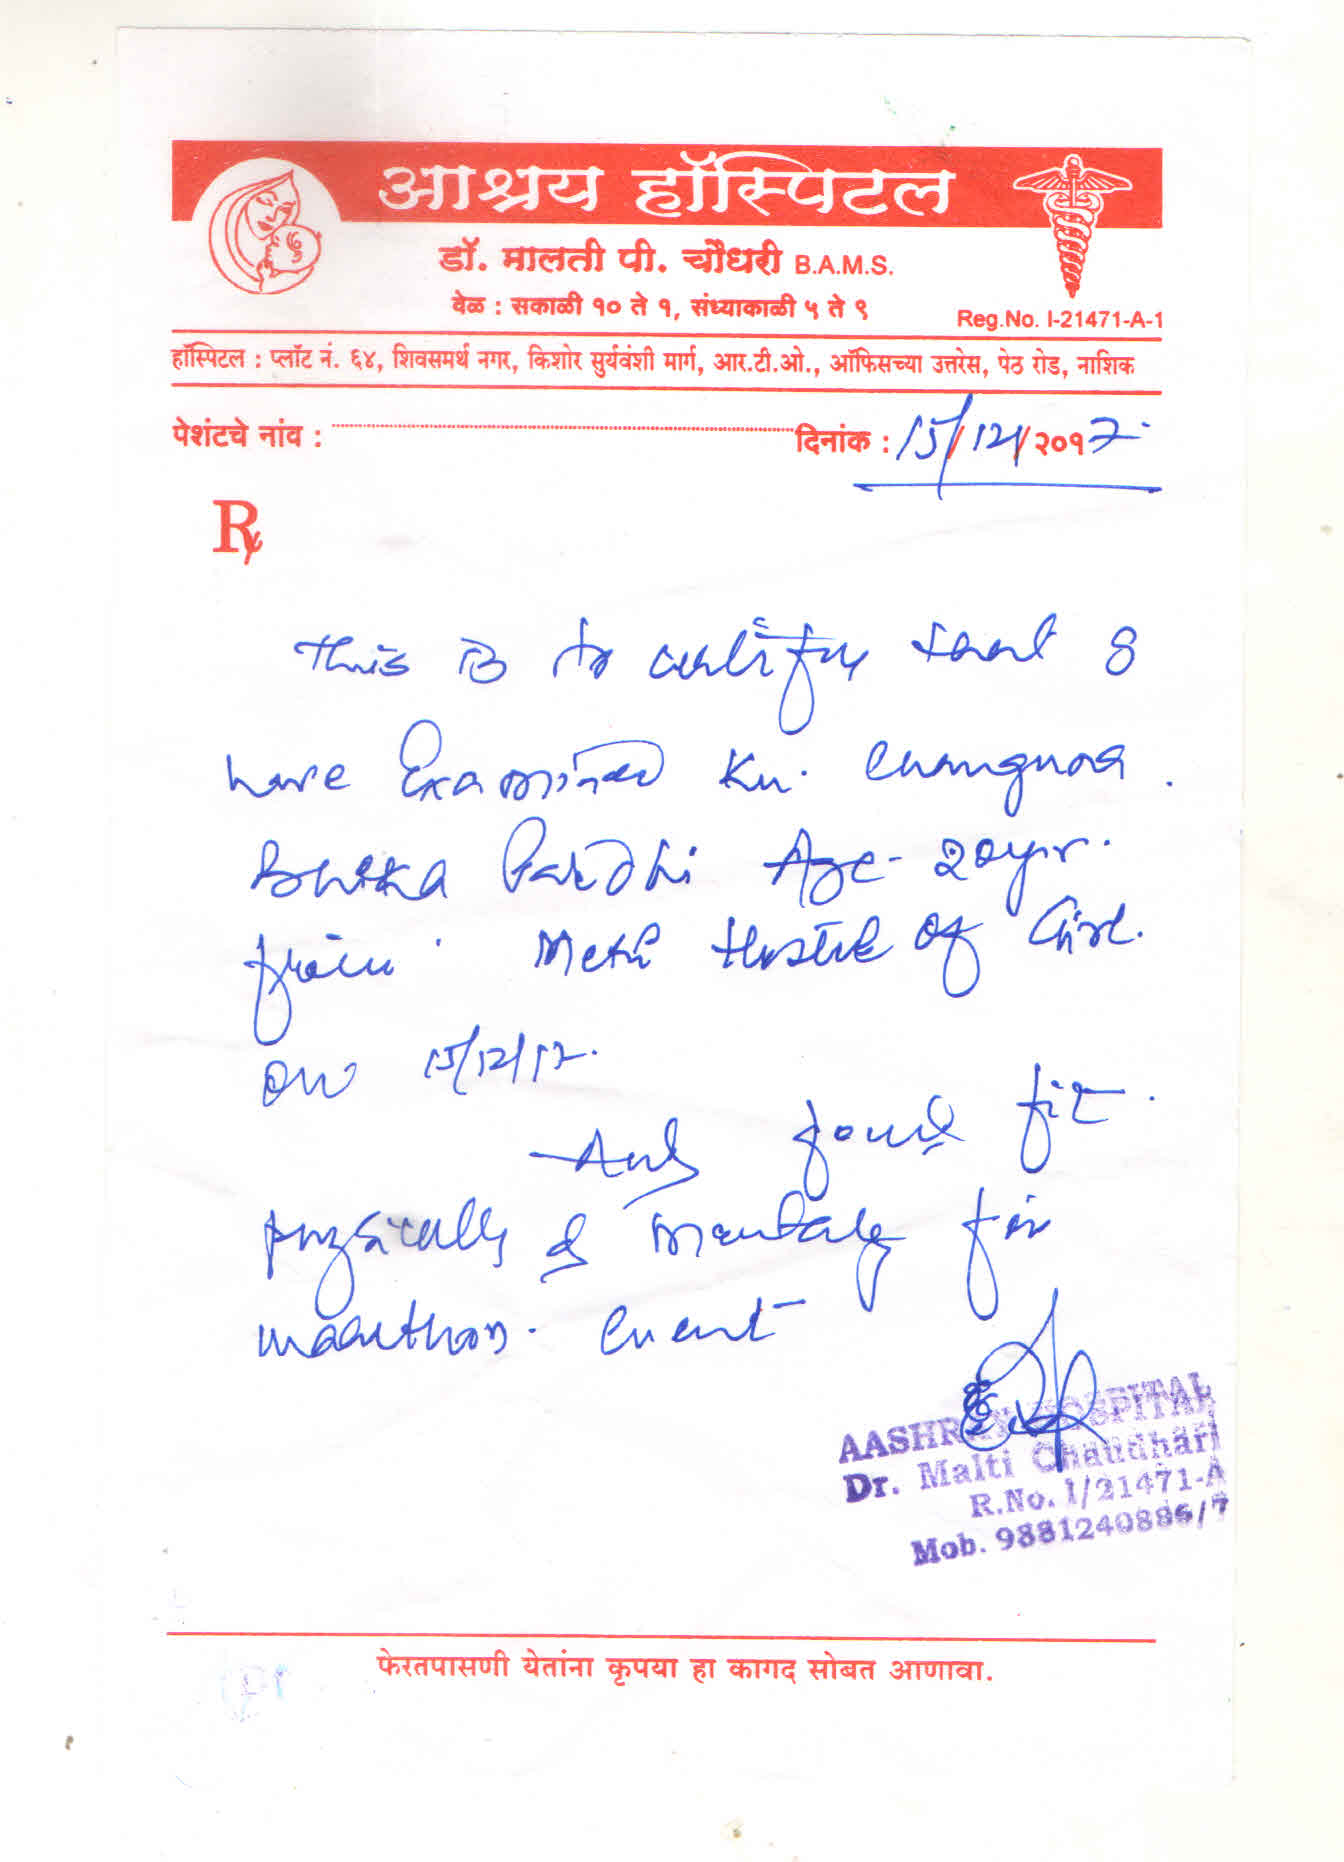 आश्रय हॉस्पिटल
डॉ. मालती पी. चौधरी B.A.M.S.
वेळ : सकाळी १० ते १, संध्याकाळी ५ ते ९
Reg.No. I-21471-A-1
हॉस्पिटल : प्लॉट नं. ६४, शिवसमर्थ नगर, किशोर सुर्यवंशी मार्ग, आर.टी.ओ., ऑफिसच्या उत्तरेस, पेठ रोड, नाशिक
पेशंटचे नांव : दिनांक : 15/12/२०१7
Rx
This is to certify that I
have Examined Ku.
Bhika Pardhi Age - 20yr.
from Hostel of Girl.
on 15/12/17.
And found fit
physically & mentaly for
marathon. event
AASHRAY HOSPITAL
Dr. Malti Chaudhari
R.No. I/21471-A
Mob. 9881240886/7
फेरतपासणी येतांना कृपया हा कागद सोबत आणावा.